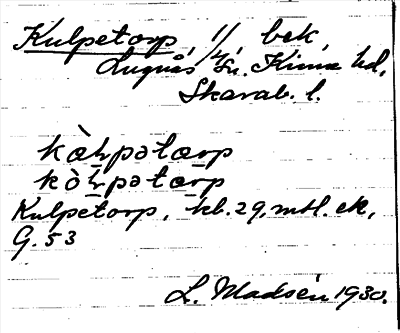 Kulpetorp, 1/1 bek,
Lugnås sn. Kinne hd,
Skarab. l.
kòⱨpətɷrp
kòⱨpətɷrp
Kulpetorp, kb. 29, mtl. ek,
G. 53
L. Madsén 1930.